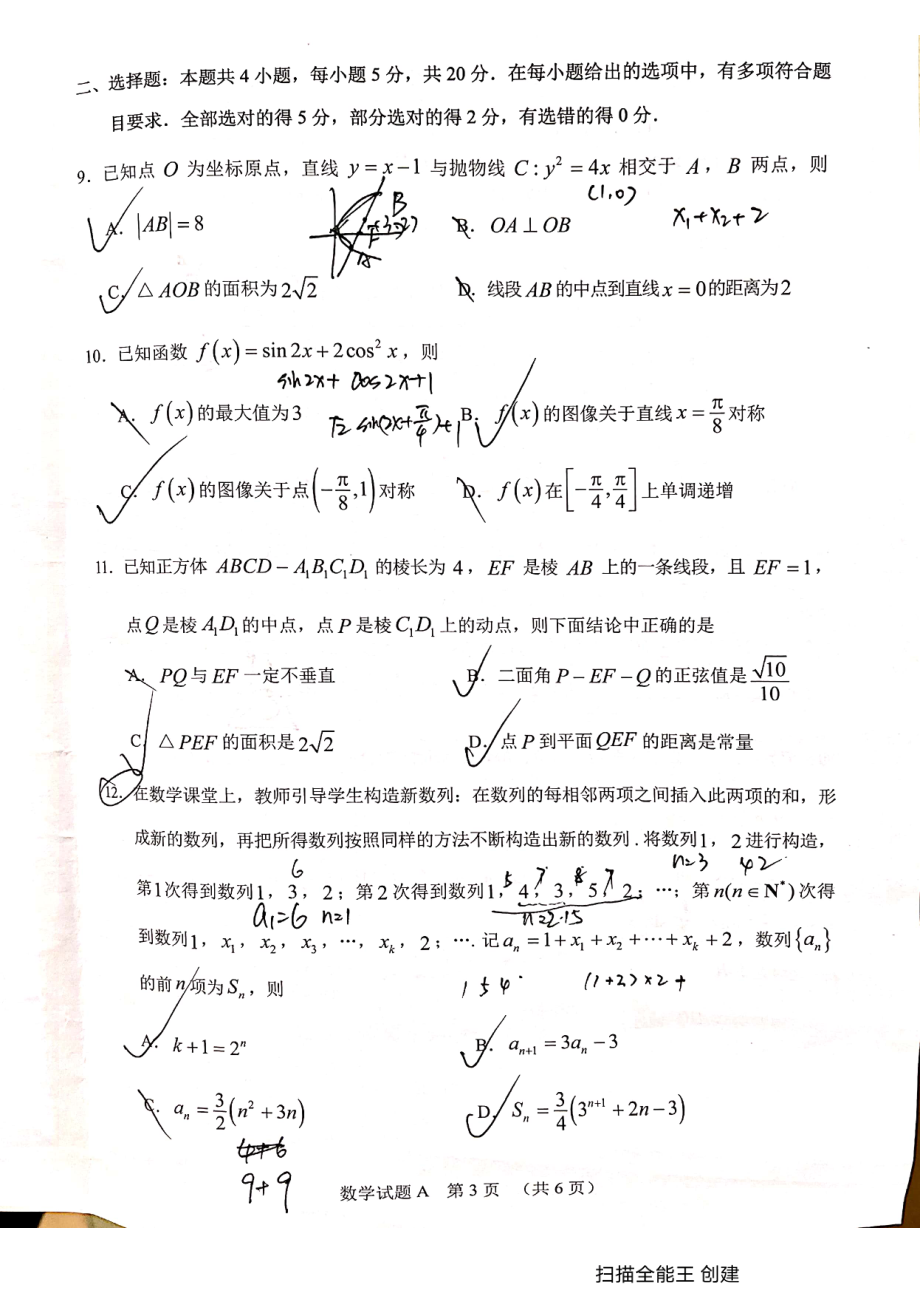 二、选择题：本题共 4 小题，每小题 5 分，共 20 分．在每小题给出的选项中，有多项符合题
目要求．全部选对的得 5 分，部分选对的得 2 分，有选错的得 0 分．
9．已知点 O 为坐标原点，直线 y = x − 1 与抛物线 C : y² = 4x 相交于 A， B 两点，则
(1,0)
B
F
A
x₁+x₂+2
A．|AB| = 8 B．OA ⊥ OB
C．△ AOB 的面积为 2√2 D．线段 AB 的中点到直线 x = 0 的距离为 2
10．已知函数 f(x) = sin 2x + 2cos² x，则
sin2x+ cos2x+1
A．f(x) 的最大值为 3 √2 sin(2x+π/4)+1 B．f(x) 的图像关于直线 x = π/8 对称
C．f(x) 的图像关于点 (−π/8, 1) 对称 D．f(x) 在 [−π/4, π/4] 上单调递增
11．已知正方体 ABCD − A₁B₁C₁D₁ 的棱长为 4， EF 是棱 AB 上的一条线段，且 EF = 1，
点 Q 是棱 A₁D₁ 的中点，点 P 是棱 C₁D₁ 上的动点，则下面结论中正确的是
A．PQ 与 EF 一定不垂直 B．二面角 P − EF − Q 的正弦值是 √10/10
C．△ PEF 的面积是 2√2 D．点 P 到平面 QEF 的距离是常量
12．在数学课堂上，教师引导学生构造新数列：在数列的每相邻两项之间插入此两项的和，形
成新的数列，再把所得数列按照同样的方法不断构造出新的数列．将数列 1， 2 进行构造，
6 5 7 8 7 n=3 42
第 1 次得到数列 1， 3， 2；第 2 次得到数列 1， 4， 3， 5， 2；…；第 n(n ∈ N*) 次得
a₁=6 n=1 n=2·15
到数列 1， x₁， x₂， x₃，…， xₖ， 2；…．记 aₙ = 1 + x₁ + x₂ + ⋯ + xₖ + 2，数列 {aₙ}
的前 n 项为 Sₙ，则 1 5 4 (1+2)×2+
A．k + 1 = 2ⁿ B．aₙ₊₁ = 3aₙ − 3
C．aₙ = 3/2 (n² + 3n) D．Sₙ = 3/4 (3ⁿ⁺¹ + 2n − 3)
9+9
数学试题 A 第 3 页 （共 6 页）
扫描全能王 创建